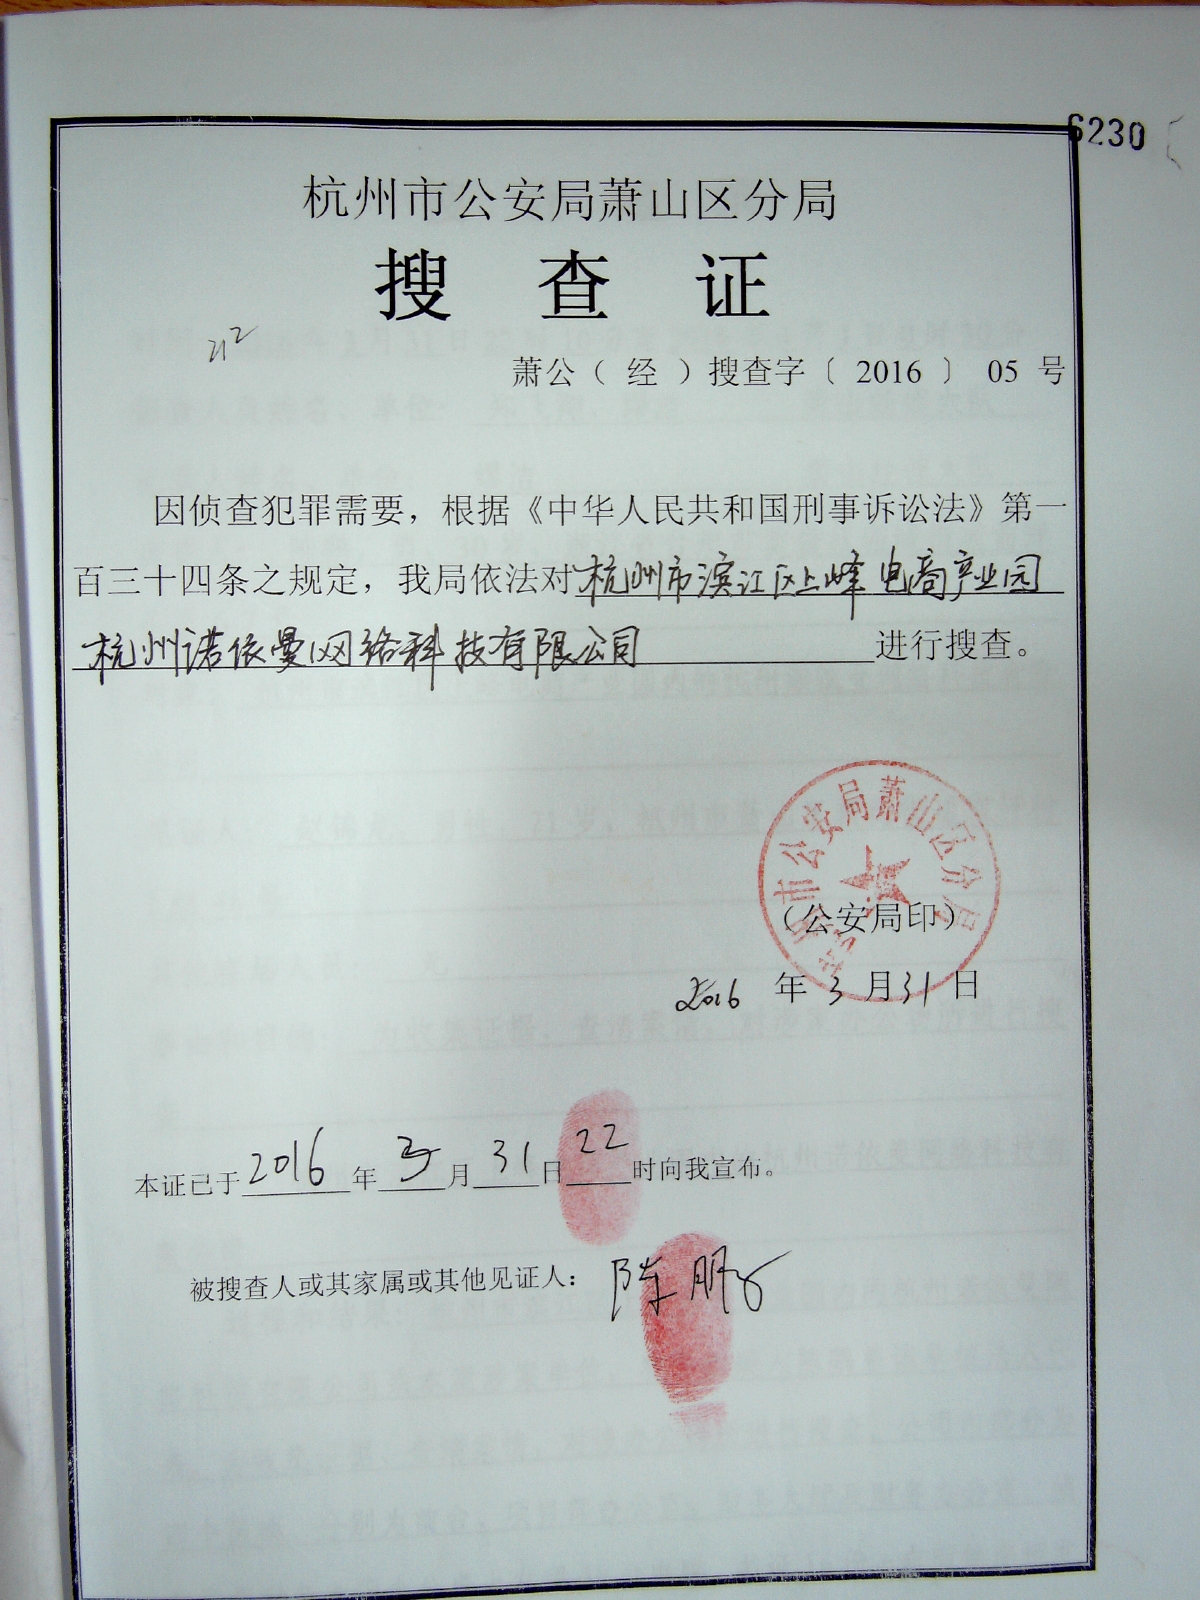 6230
杭州市公安局萧山区分局
搜 查 证
212
萧公（ 经 ）搜查字〔 2016 〕 05 号
因侦查犯罪需要，根据《中华人民共和国刑事诉讼法》第一
百三十四条之规定，我局依法对杭州市滨江区上峰电商产业园
杭州诺依曼网络科技有限公司进行搜查。
杭州市公安局萧山区分局
（公安局印）
2016 年 3 月 31 日
本证已于 2016 年 3 月 31 日 22 时向我宣布。
被搜查人或其家属或其他见证人： 陈鹏